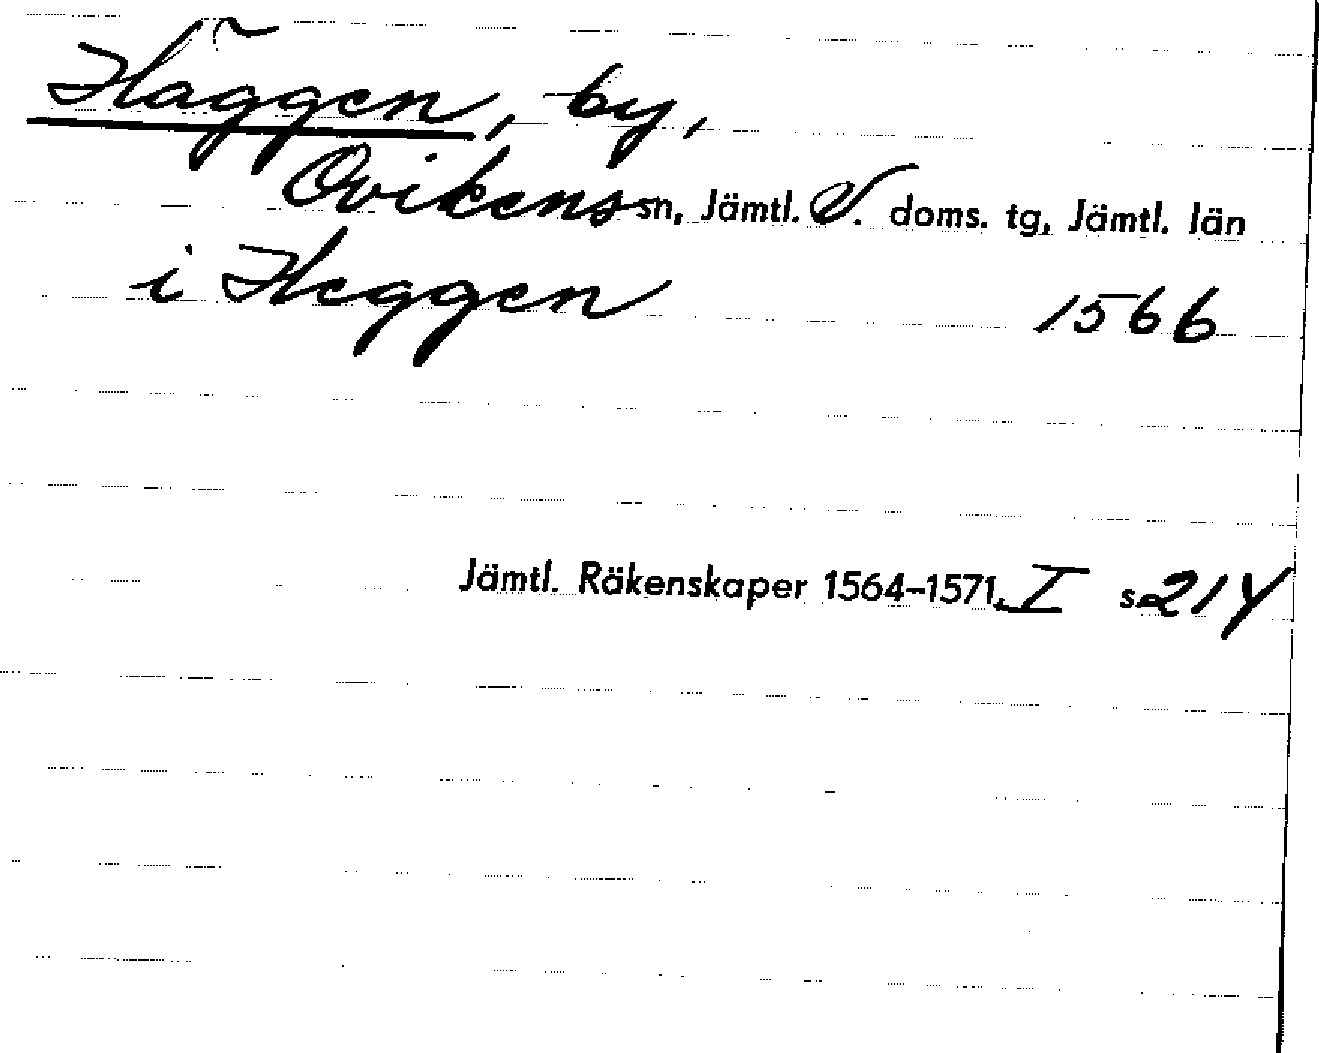 Häggen, by,
Ovikens sn, Jämtl. V. doms. tg, Jämtl. län
i Heggen 1566
Jämtl. Räkenskaper 1564-1571, I s. 214